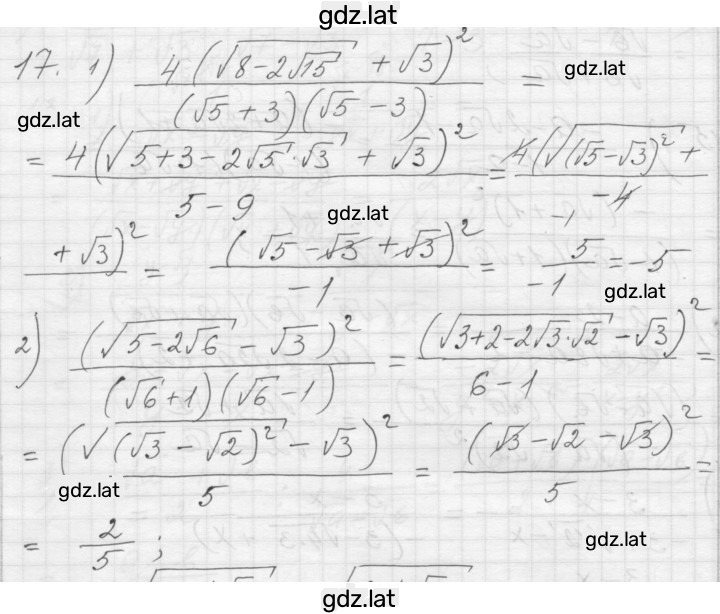 gdz.lat
17. 1) 4(√(8-2√15) + √3)² / (√5 + 3)(√5 - 3) = gdz.lat
gdz.lat
= 4(√(5+3-2√5·√3) + √3)² / 5-9 = 4(√((√5-√3)²) + / -4 -1
gdz.lat
+ √3)² = (√5 - √3 + √3)² / -1 = 5 / -1 = -5
gdz.lat
2) (√(5-2√6) - √3)² / (√6+1)(√6-1) = (√(3+2-2√3·√2) - √3)² / 6-1 =
= (√((√3 - √2)²) - √3)² / 5 = (√3 - √2 - √3)² / 5 =
gdz.lat
= 2 / 5 ;
gdz.lat
gdz.lat